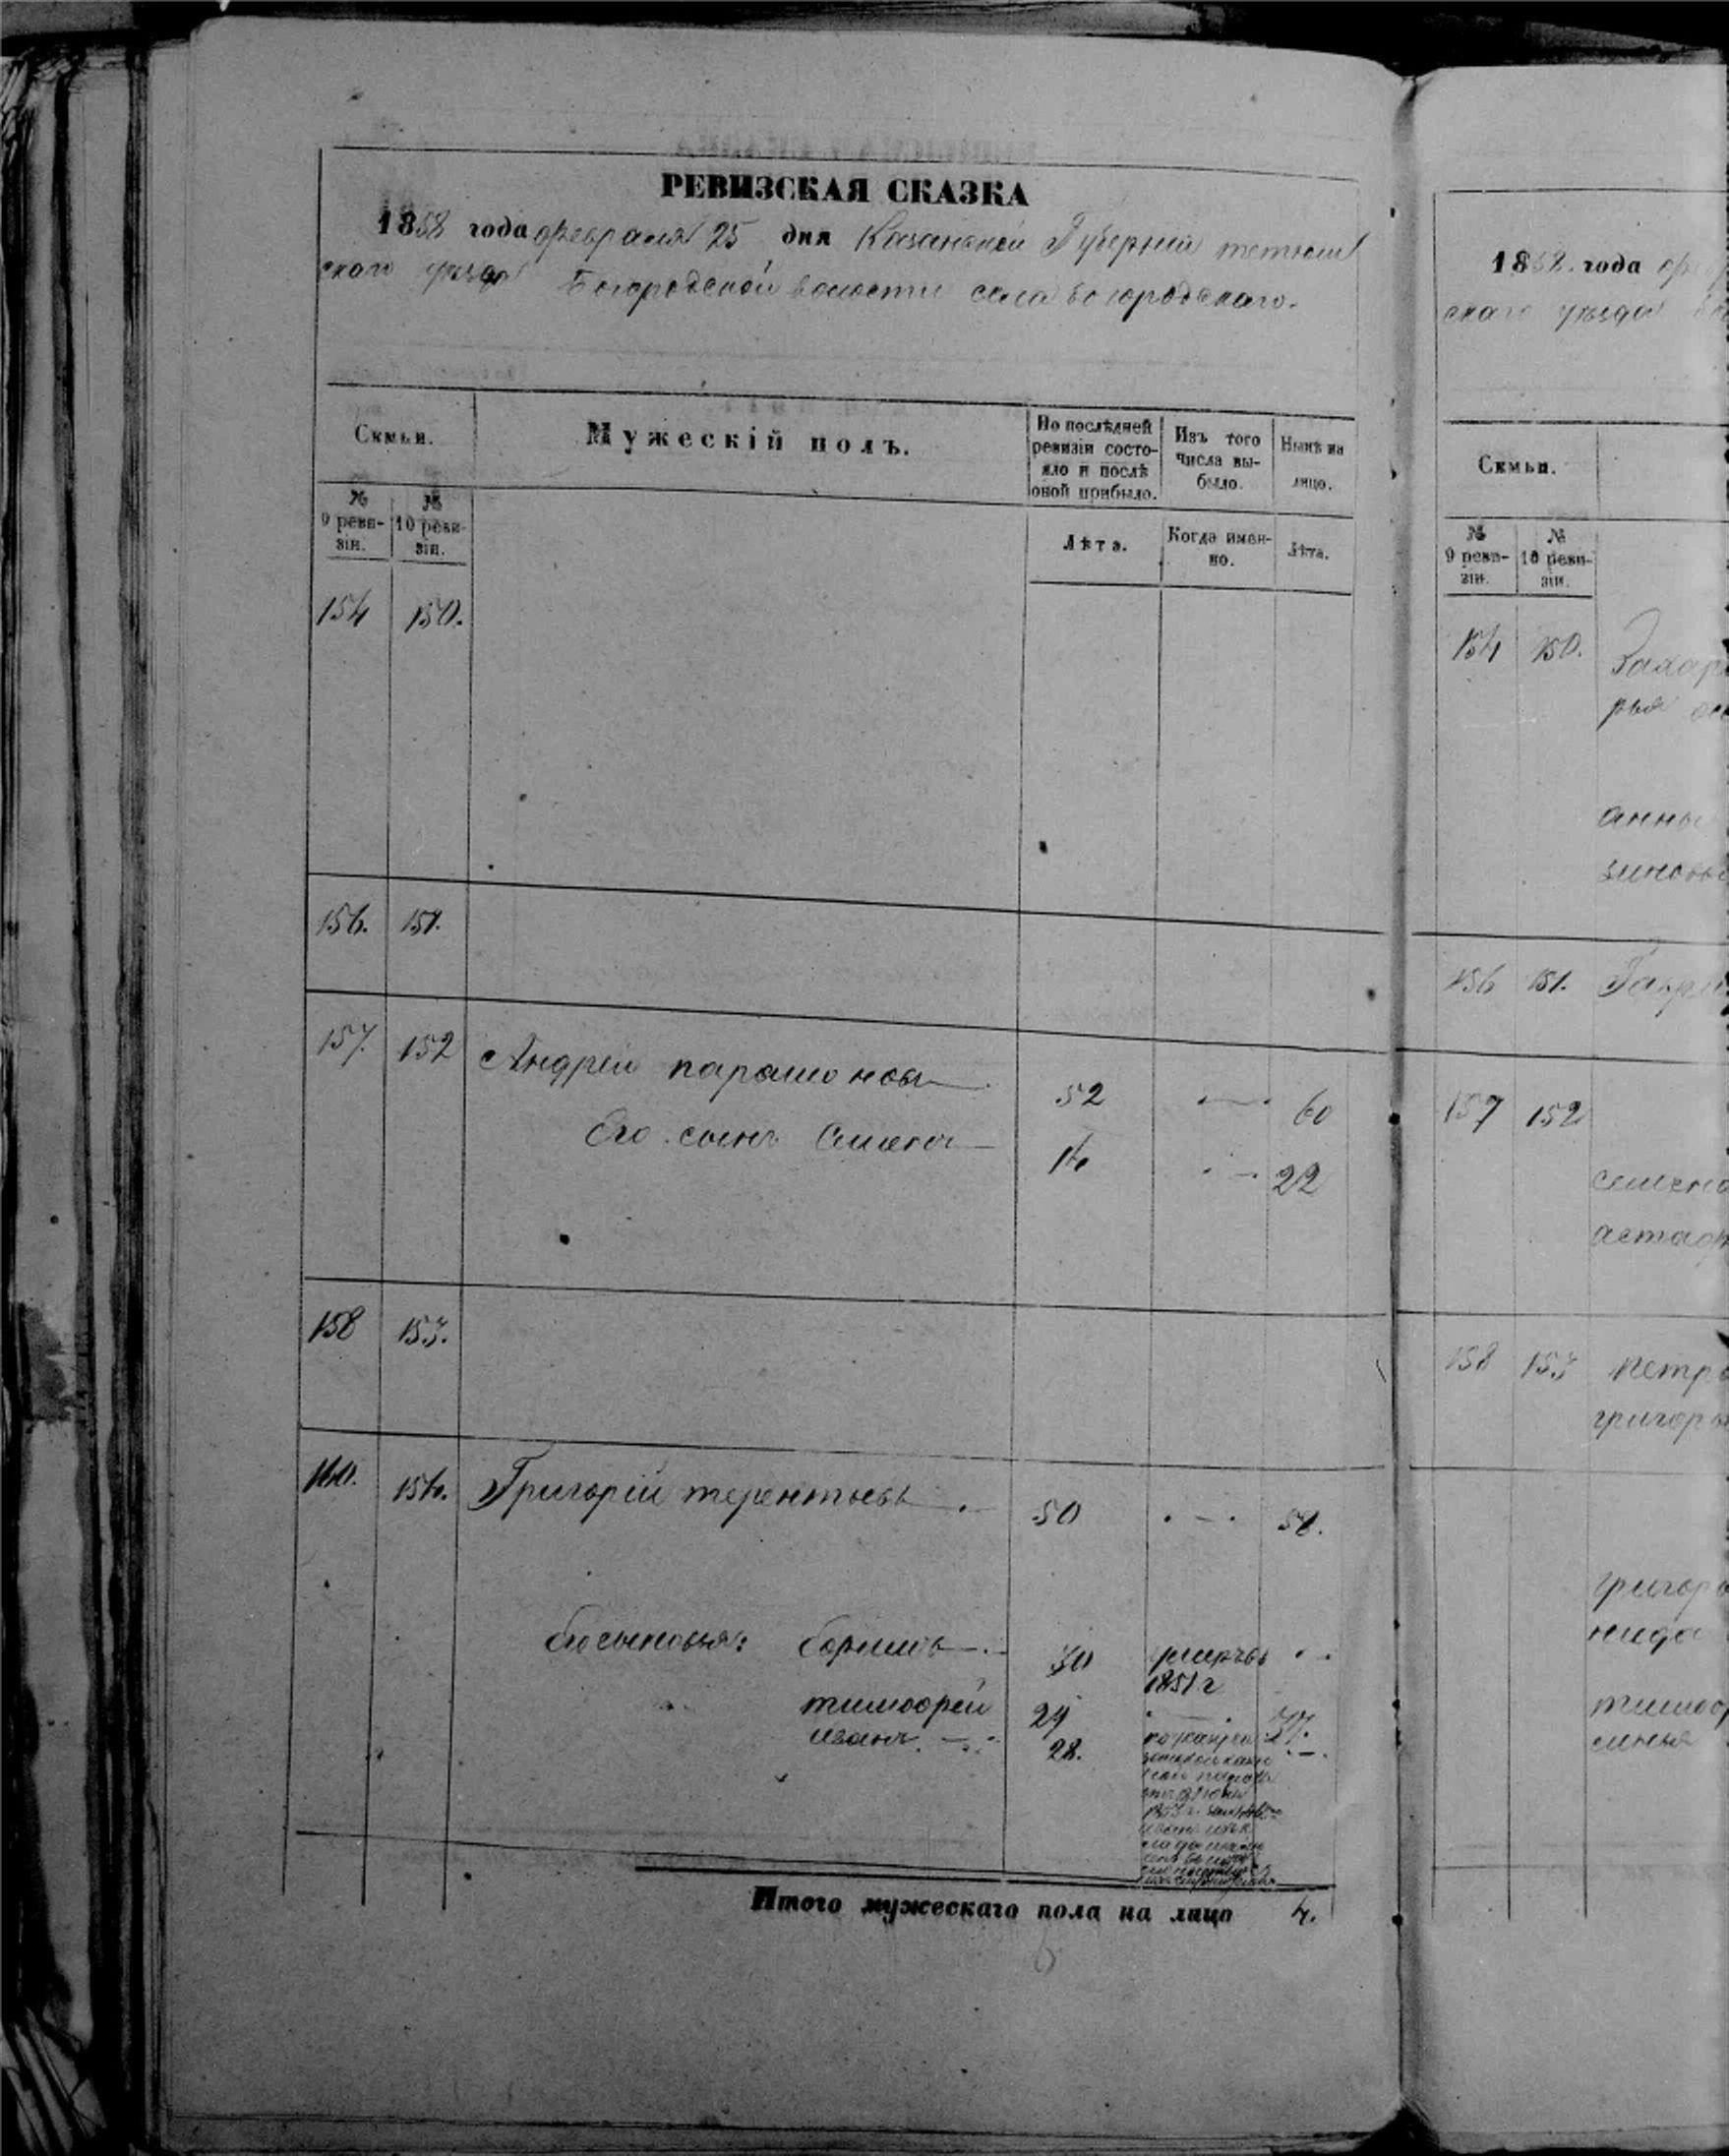 РЕВИЗСКАЯ СКАЗКА
1858 года февраля 25 дня Казанской Губернии тетюш
скаго уезда Богородской волости села Богородскаго.
Семьи.
Мужескій полъ.
По послѣдней
ревизіи состо-
яло и послѣ
оной прибыло.
Изъ того
числа вы-
было.
Нынѣ на
лицо.
№
9 реви-
зіи.
№
10 реви-
зіи.
Лѣта.
Когда имен-
но.
Лѣта.
154 150.
156. 151.
157. 152 Андрей парамоновъ 52 60
Его сынъ Семенъ 14 22
158 153.
160. 154. Григорій терентьевъ 50 58.
Его сыновья: Ефримъ 30 умеръ въ
1851 г
тимофей 29 37.
иванъ 28.
Итого мужескаго пола на лицо 4.
1858. года
скаго уезда
Семьи.
№
9 реви-
зіи.
№
10 реви-
зіи.
154 150. Захар
рья
анны
зиновь
156 151. Гаври
157 152
семено
астаф
158 153 петро
григорь
григорь
нида
тимоф
синья